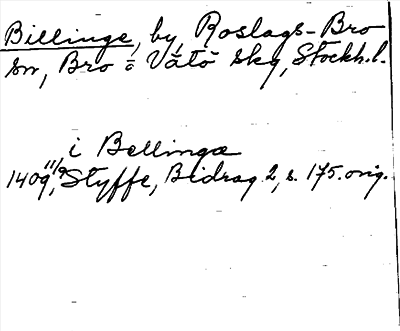 Billinge, by, Roslags-Bro
sn, Bro o Vätö sky, Stockh.l.
i Bellingæ
1409 11/9, Styffe, Bidrag 2, s. 175. orig.